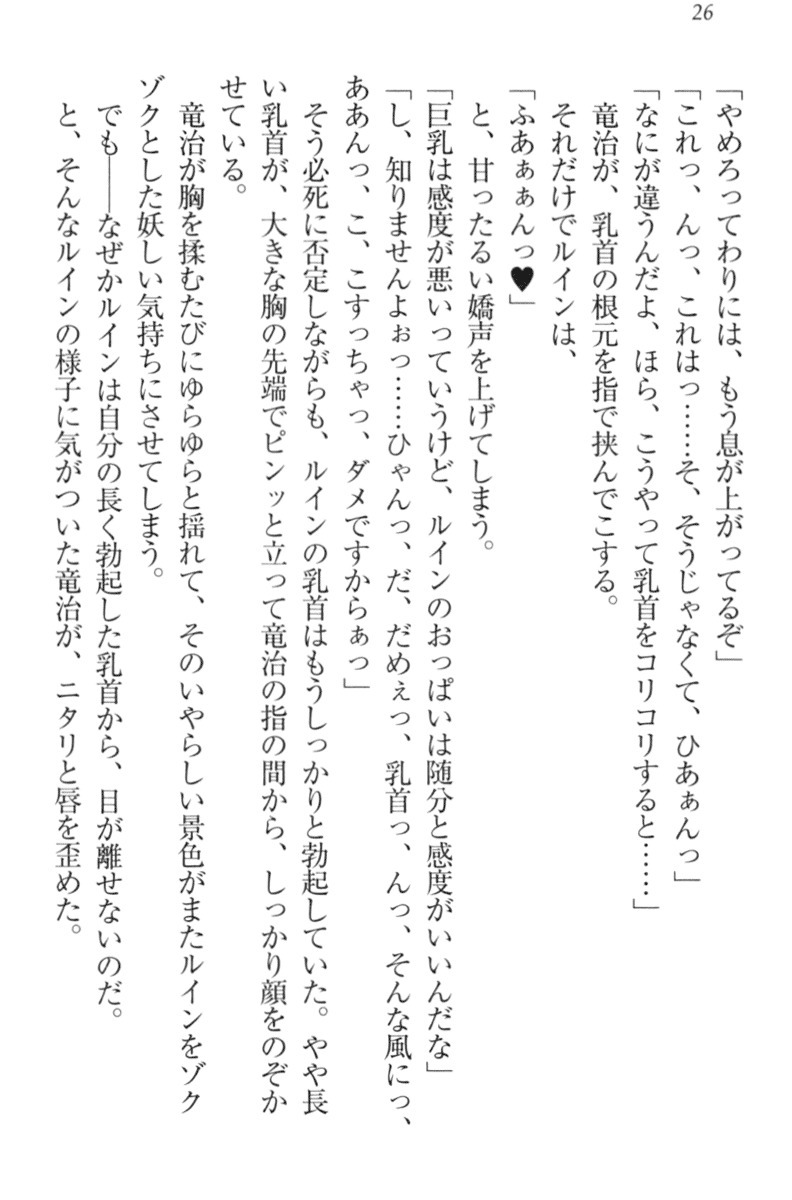 26
「やめろってわりには、もう息が上がってるぞ」
「これっ、んっ、これはっ……そ、そうじゃなくて、ひあぁんっ」
「なにが違うんだよ、ほら、こうやって乳首をコリコリすると……」
竜治が、乳首の根元を指で挟んでこする。
それだけでルインは、
「ふあぁぁんっ♥」
と、甘ったるい嬌声を上げてしまう。
「巨乳は感度が悪いっていうけど、ルインのおっぱいは随分と感度がいいんだな」
「し、知りませんよぉっ……ひゃんっ、だ、だめぇっ、乳首っ、んっ、そんな風にっ、
ああんっ、こ、こすっちゃっ、ダメですからぁっ」
そう必死に否定しながらも、ルインの乳首はもうしっかりと勃起していた。やや長
い乳首が、大きな胸の先端でピンッと立って竜治の指の間から、しっかり顔をのぞか
せている。
竜治が胸を揉むたびにゆらゆらと揺れて、そのいやらしい景色がまたルインをゾク
ゾクとした妖しい気持ちにさせてしまう。
でも――なぜかルインは自分の長く勃起した乳首から、目が離せないのだ。
と、そんなルインの様子に気がついた竜治が、ニタリと唇を歪めた。